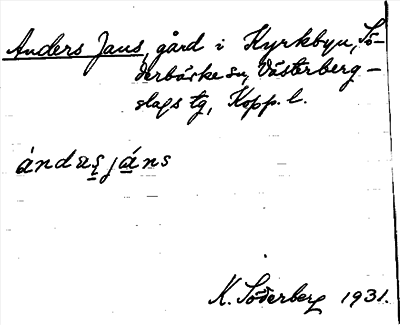 Anders Jans, gård i Kyrkbyn, Sö-
derbärke sn, Västerberg-
slags tg, Kopp. l.
ándəṣjáns
K. Söderberg 1931.